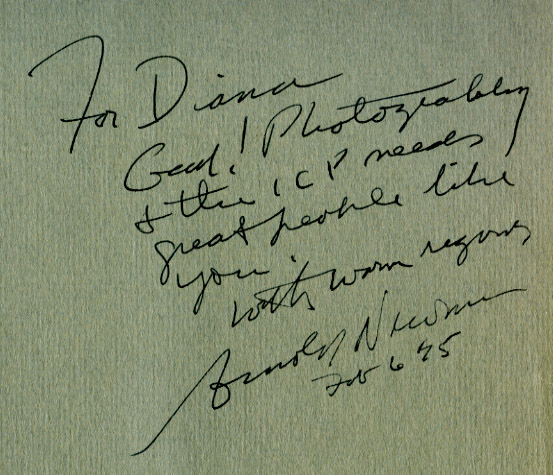 For Diana
Good! Photography
& the ICP needs
great people like
you!
with warm regards
Arnold Newman
Feb 6 95